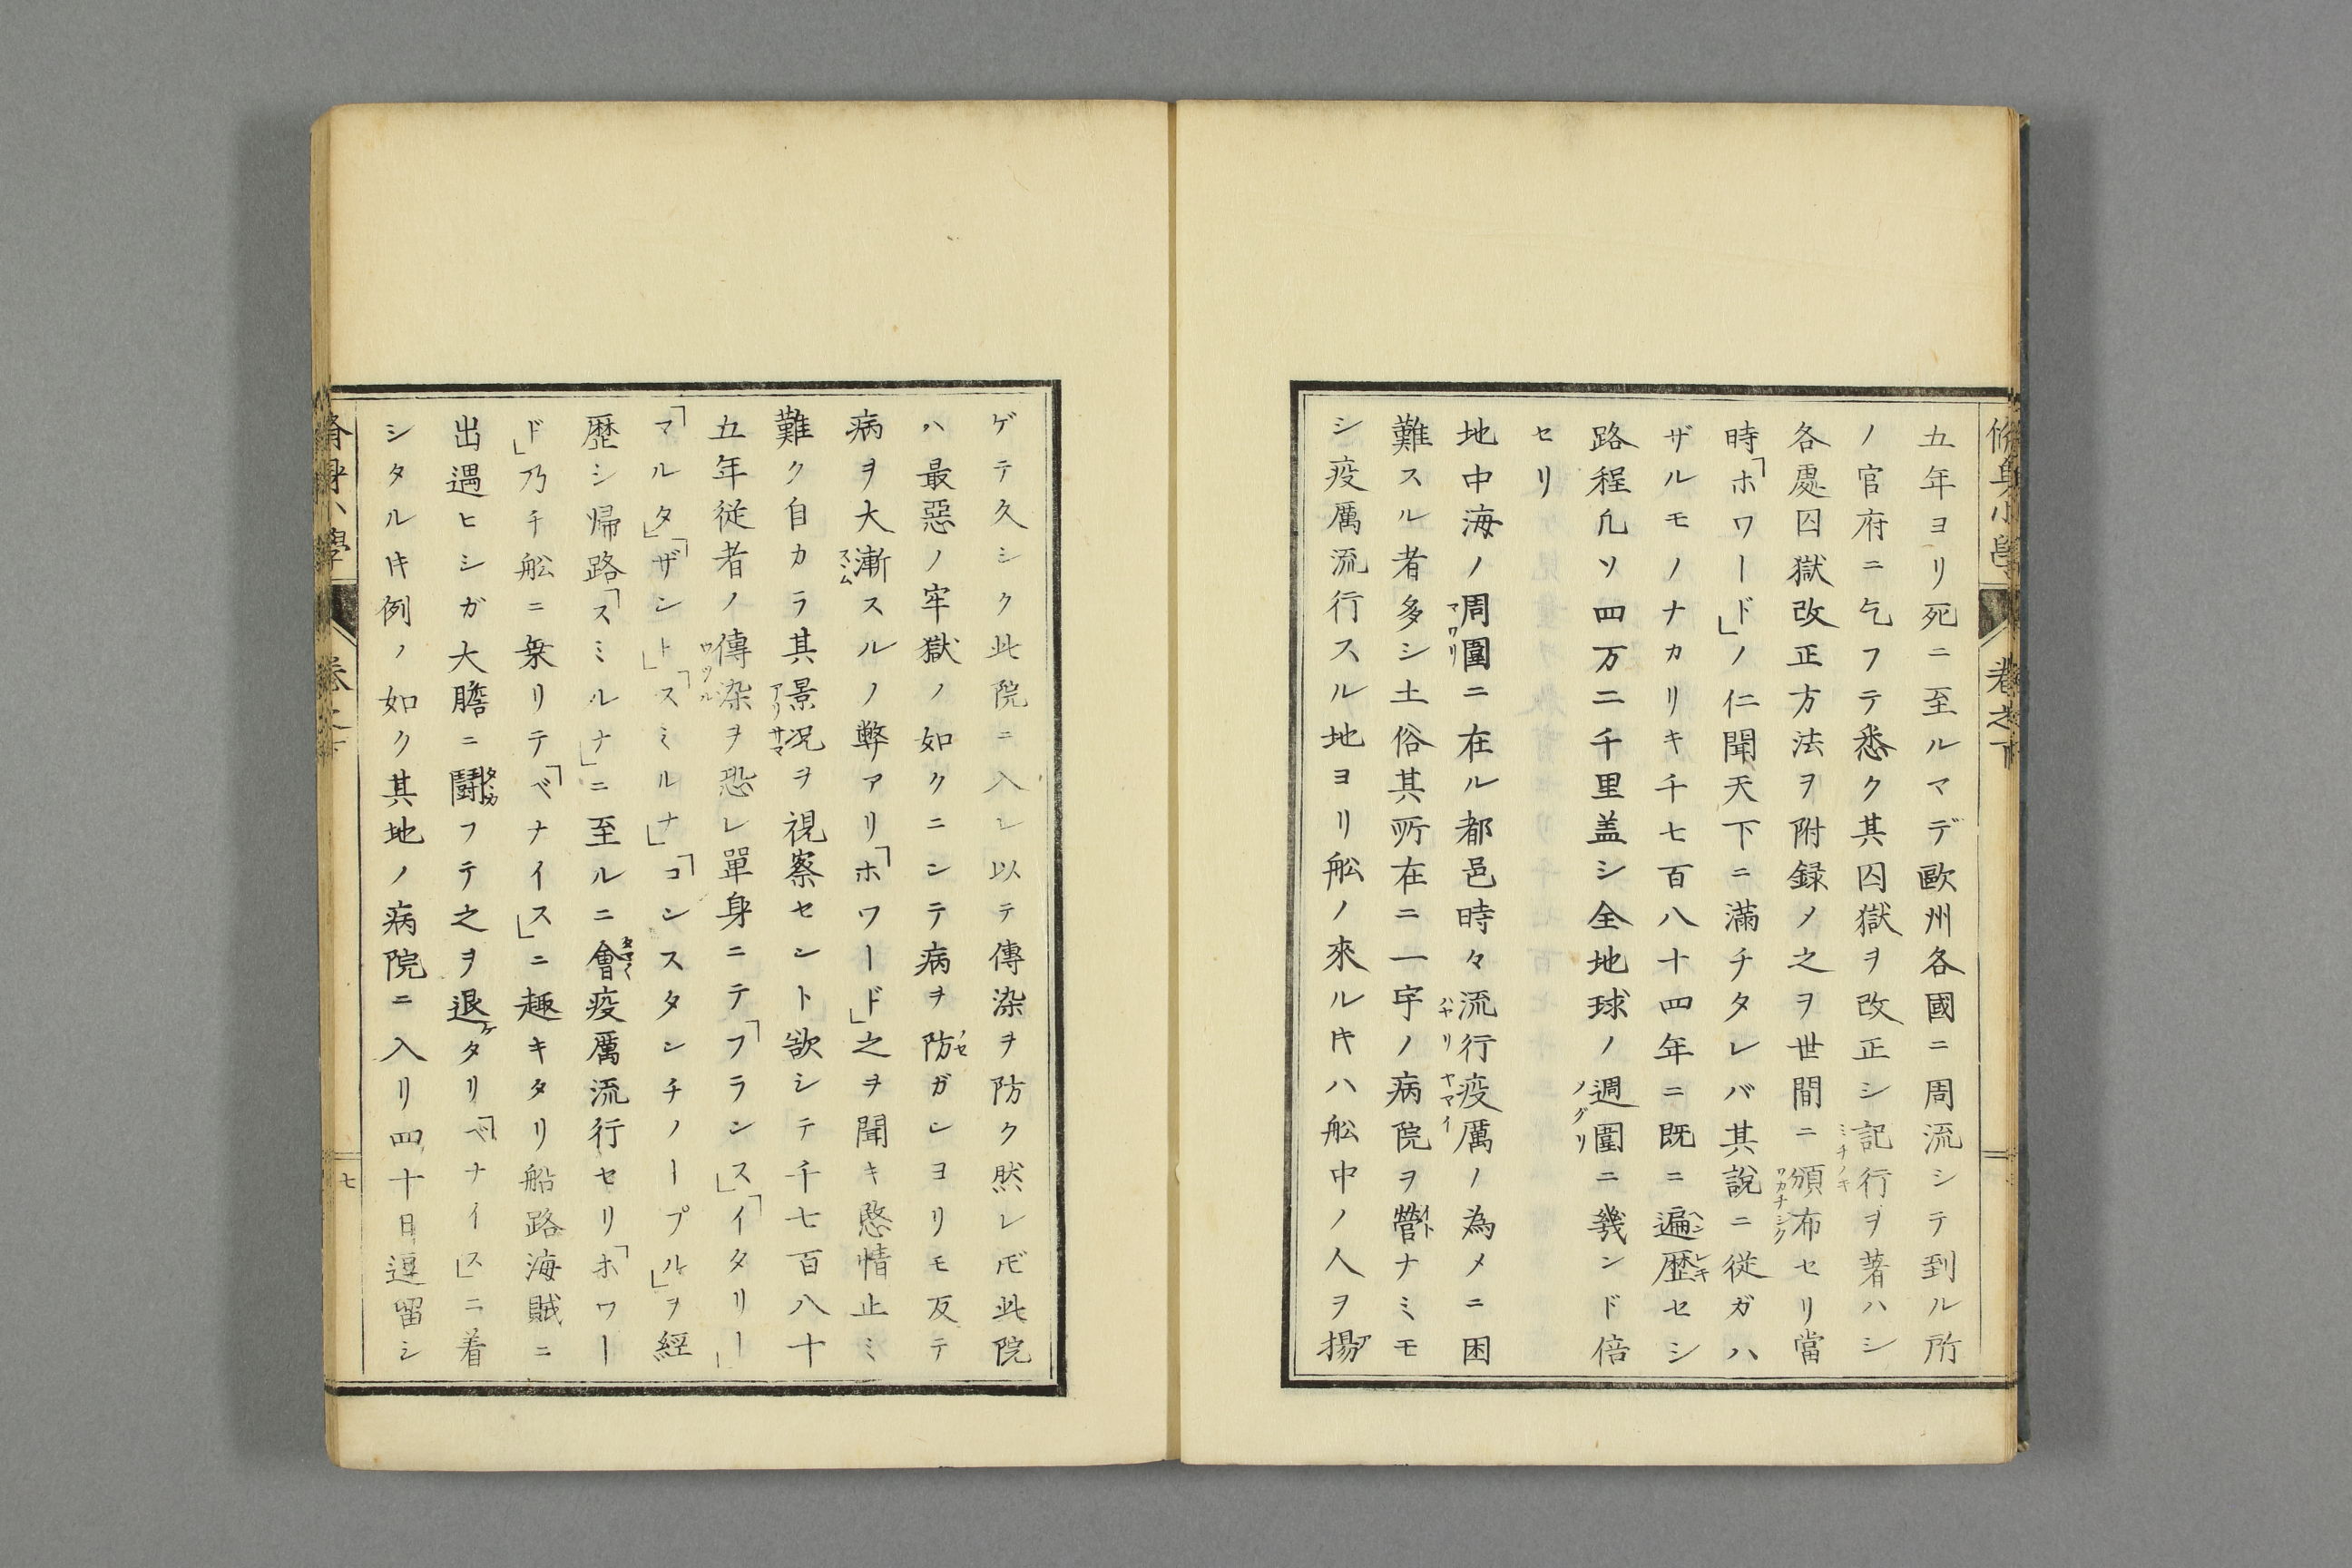 脩身小學 卷之下
五年ヨリ死ニ至ルマデ歐州各國ニ周流シテ到ル所
ノ官府ニ乞フテ悉ク其囚獄ヲ改正シ記行ヲ著ハシ
各處囚獄改正方法ヲ附録メ之ヲ世間ニ頒布セリ當
時「ホワード」ノ仁聞天下ニ滿チタレバ其說ニ從ガハ
ザルモノナカリキ千七百八十四年ニ既ニ遍歴セシ
路程凢ソ四万二千里盖シ全地球ノ週圍ニ幾ンド倍
セリ
地中海ノ周圍ニ在ル都邑時々流行疫厲ノ為メニ困
難スル者多シ土俗其所在ニ一宇ノ病院ヲ營ナミモ
シ疫厲流行スル地ヨリ舩ノ來ル𪜈ハ舩中ノ人ヲ揚
ゲテ久シク此院ニ入レ以テ傳染ヲ防ク然レ𪜈此院
ハ最惡ノ牢獄ノ如クニシテ病ヲ防ガンヨリモ反テ
病ヲ大漸スルノ弊アリ「ホワード」之ヲ聞キ愍情止ミ
難ク自カラ其景况ヲ視察セント欲シテ千七百八十
五年従者ノ傳染ヲ恐レ單身ニテ「フランス」「イタリー」
「マルタ」「ザント」「スミルナ」「コンスタンチノープル」ヲ經
歴シ帰路「スミルナ」ニ至ルニ會疫厲流行セリ「ホワー
ド」乃チ舩ニ乗リテ「ベナイス」ニ趣キタリ船路海賊ニ
出遇ヒシガ大膽ニ鬪フテ之ヲ退タリ「ベナイス」ニ着
シタルキ例ノ如ク其地ノ病院ニ入リ四十日逗留シ
脩身小學 卷之下 七